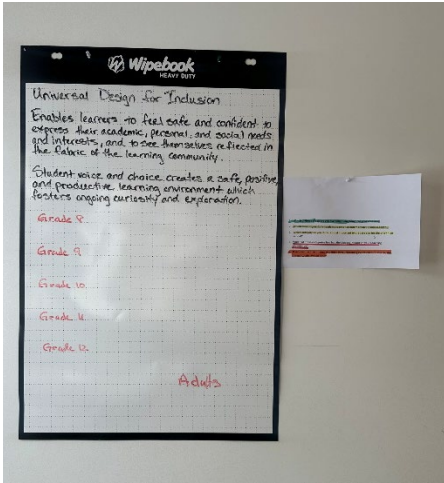 Wipebook
HEAVY DUTY
Universal Design for Inclusion
Enables learners to feel safe and confident to
express their academic, personal, and social needs
and interests, and to see themselves reflected in
the fabric of the learning community.
Student voice and choice creates a safe, positive,
and productive learning environment which
fosters ongoing curiosity and exploration.
Grade 8.
Grade 9
Grade 10.
Grade 11.
Grade 12.
Adults